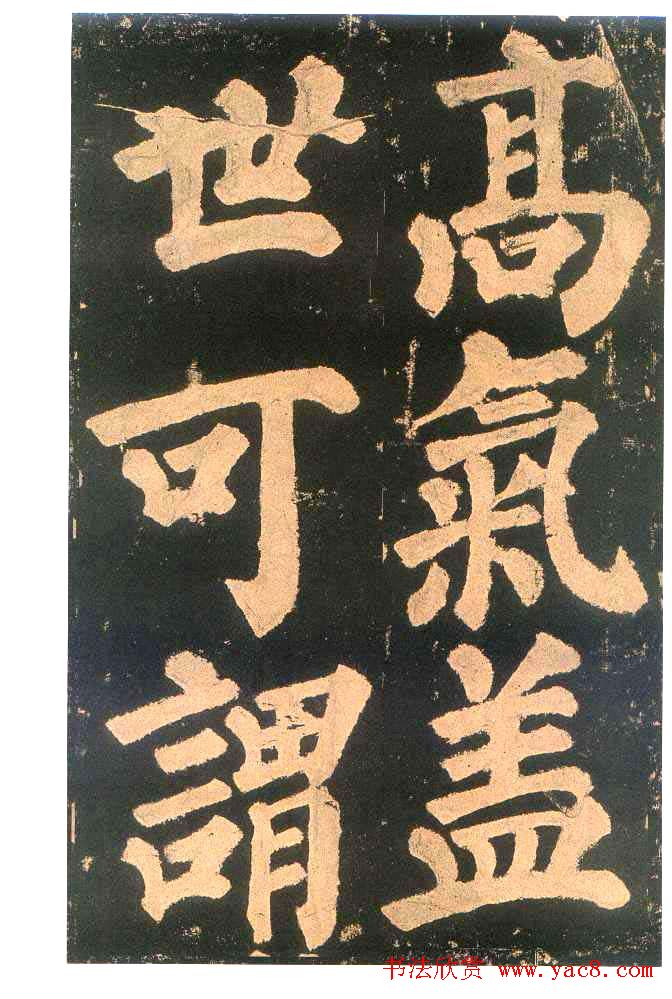 髙氣盖
世可謂
书法欣赏 www.yac8.com